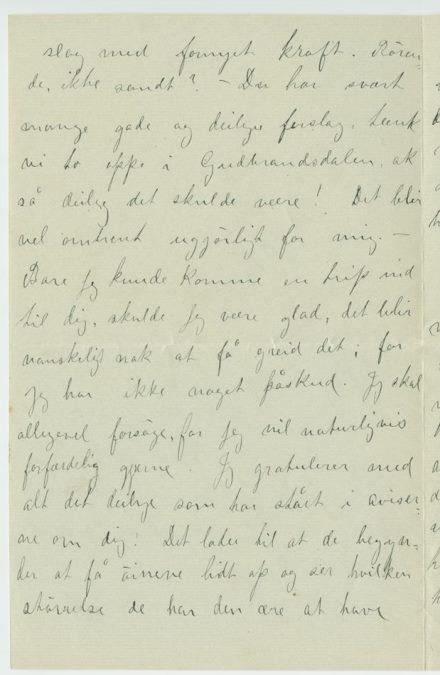 slag med fornyet kraft. Rören-
de, ikke sandt? – Du har svært
mange gode og deilige forslag, tænk
vi to oppe i Gudbrandsdalen, ak
så deilig det skulde være! Det blir
vel omtrent ugjörligt for mig. –
Bare jeg kunde komme en trip ind
til dig, skulde jeg være glad, det blir
vanskeligt nok at få greid det; for
jeg har ikke noget påskud. Jeg skal
allegevel forsøge, for jeg vil naturligvis
forfærdelig gjerne. Jeg gratulerer med
alt det deilige som har stået i aviser-
ne om dig! Det lader til at de begyn-
der at få öinene lidt op og ser hvilken
størrelse de har den ære at have